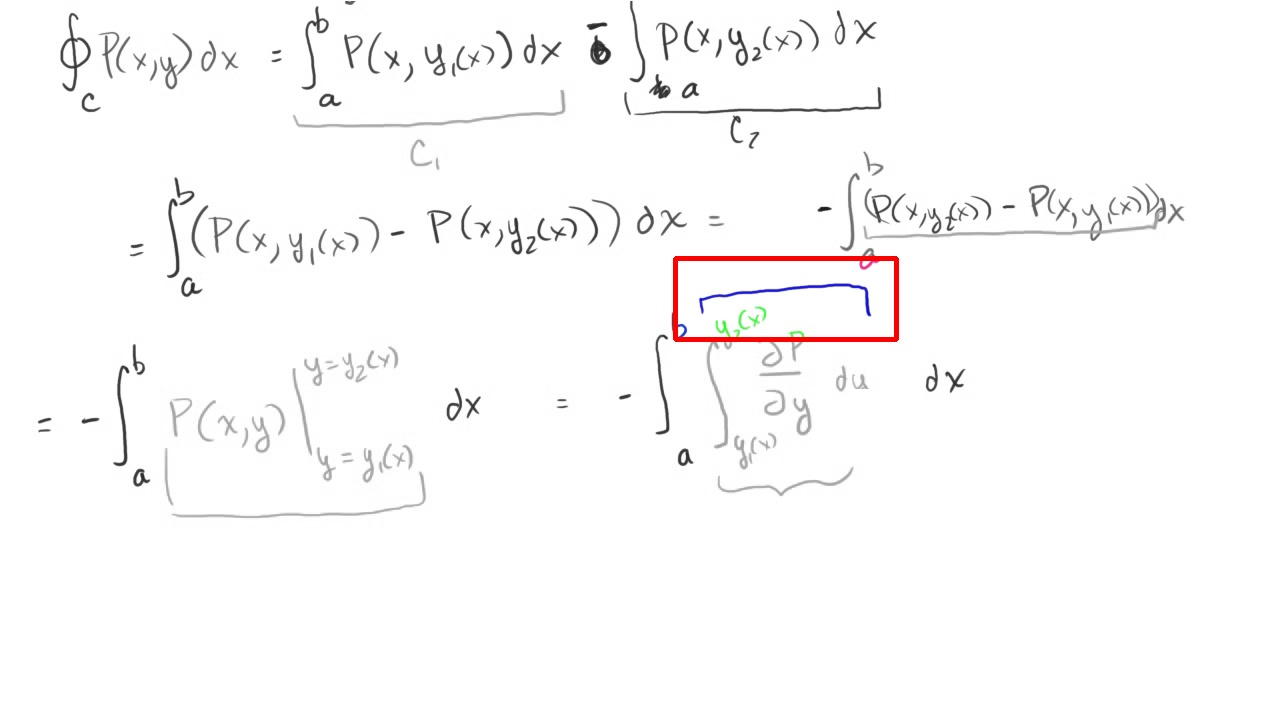 ∮_C P(x,y) dx = ∫_a^b P(x, y₁(x)) dx - ∫_a P(x, y₂(x)) dx
C₁ C₂
= ∫_a^b (P(x, y₁(x)) - P(x, y₂(x))) dx = - ∫_a^b (P(x, y₂(x)) - P(x, y₁(x))) dx
= - ∫_a^b P(x,y) |_{y=y₁(x)}^{y=y₂(x)} dx = - ∫_a^b ∫_{y₁(x)}^{y₂(x)} ∂P/∂y du dx